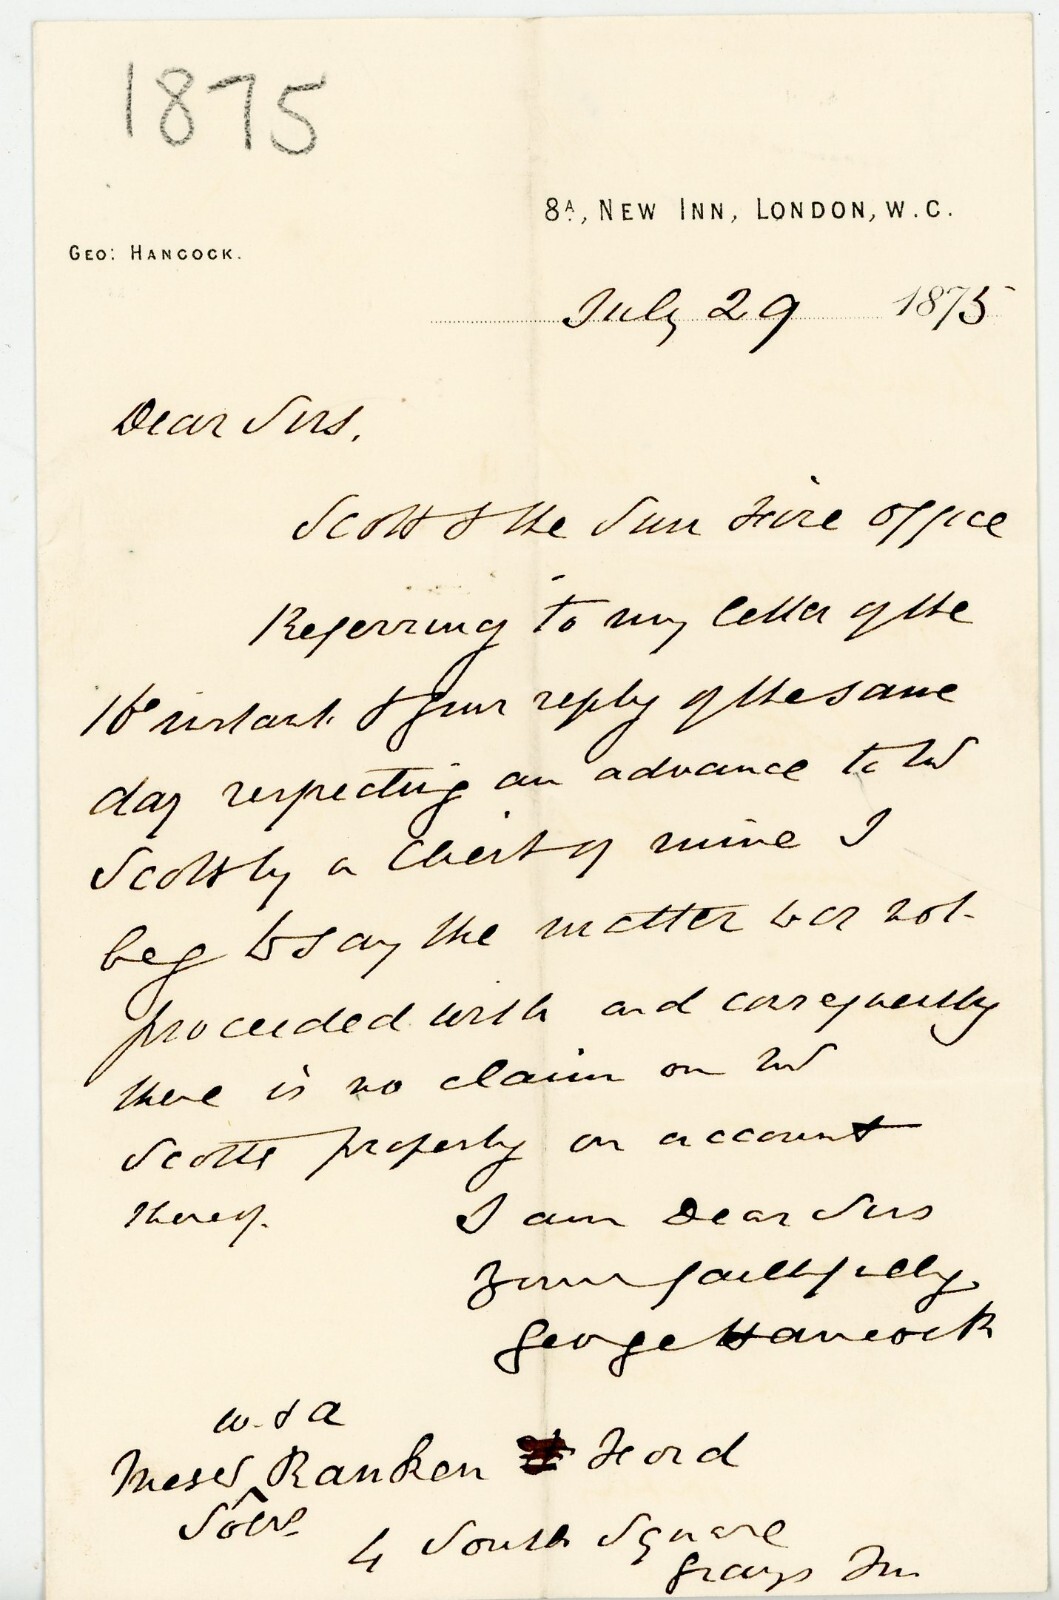 1875
8A, NEW INN, LONDON, W.C.
GEO: HANCOCK.
July 29 1875
Dear Sirs,
Scott & the Sun Fire Office
Referring to my letter of the
instant & your reply of the same
day respecting an advance to Mr
Scott by a Client of mine I
beg to say the matter was not
proceeded with and consequently
there is no claim on Mr
Scotts property on account
thereof.
I am Dear Sirs
Yours faithfully
George Hancock
W. & A
Messrs Ranken Ford
Solrs
4 South Square
Grays Inn